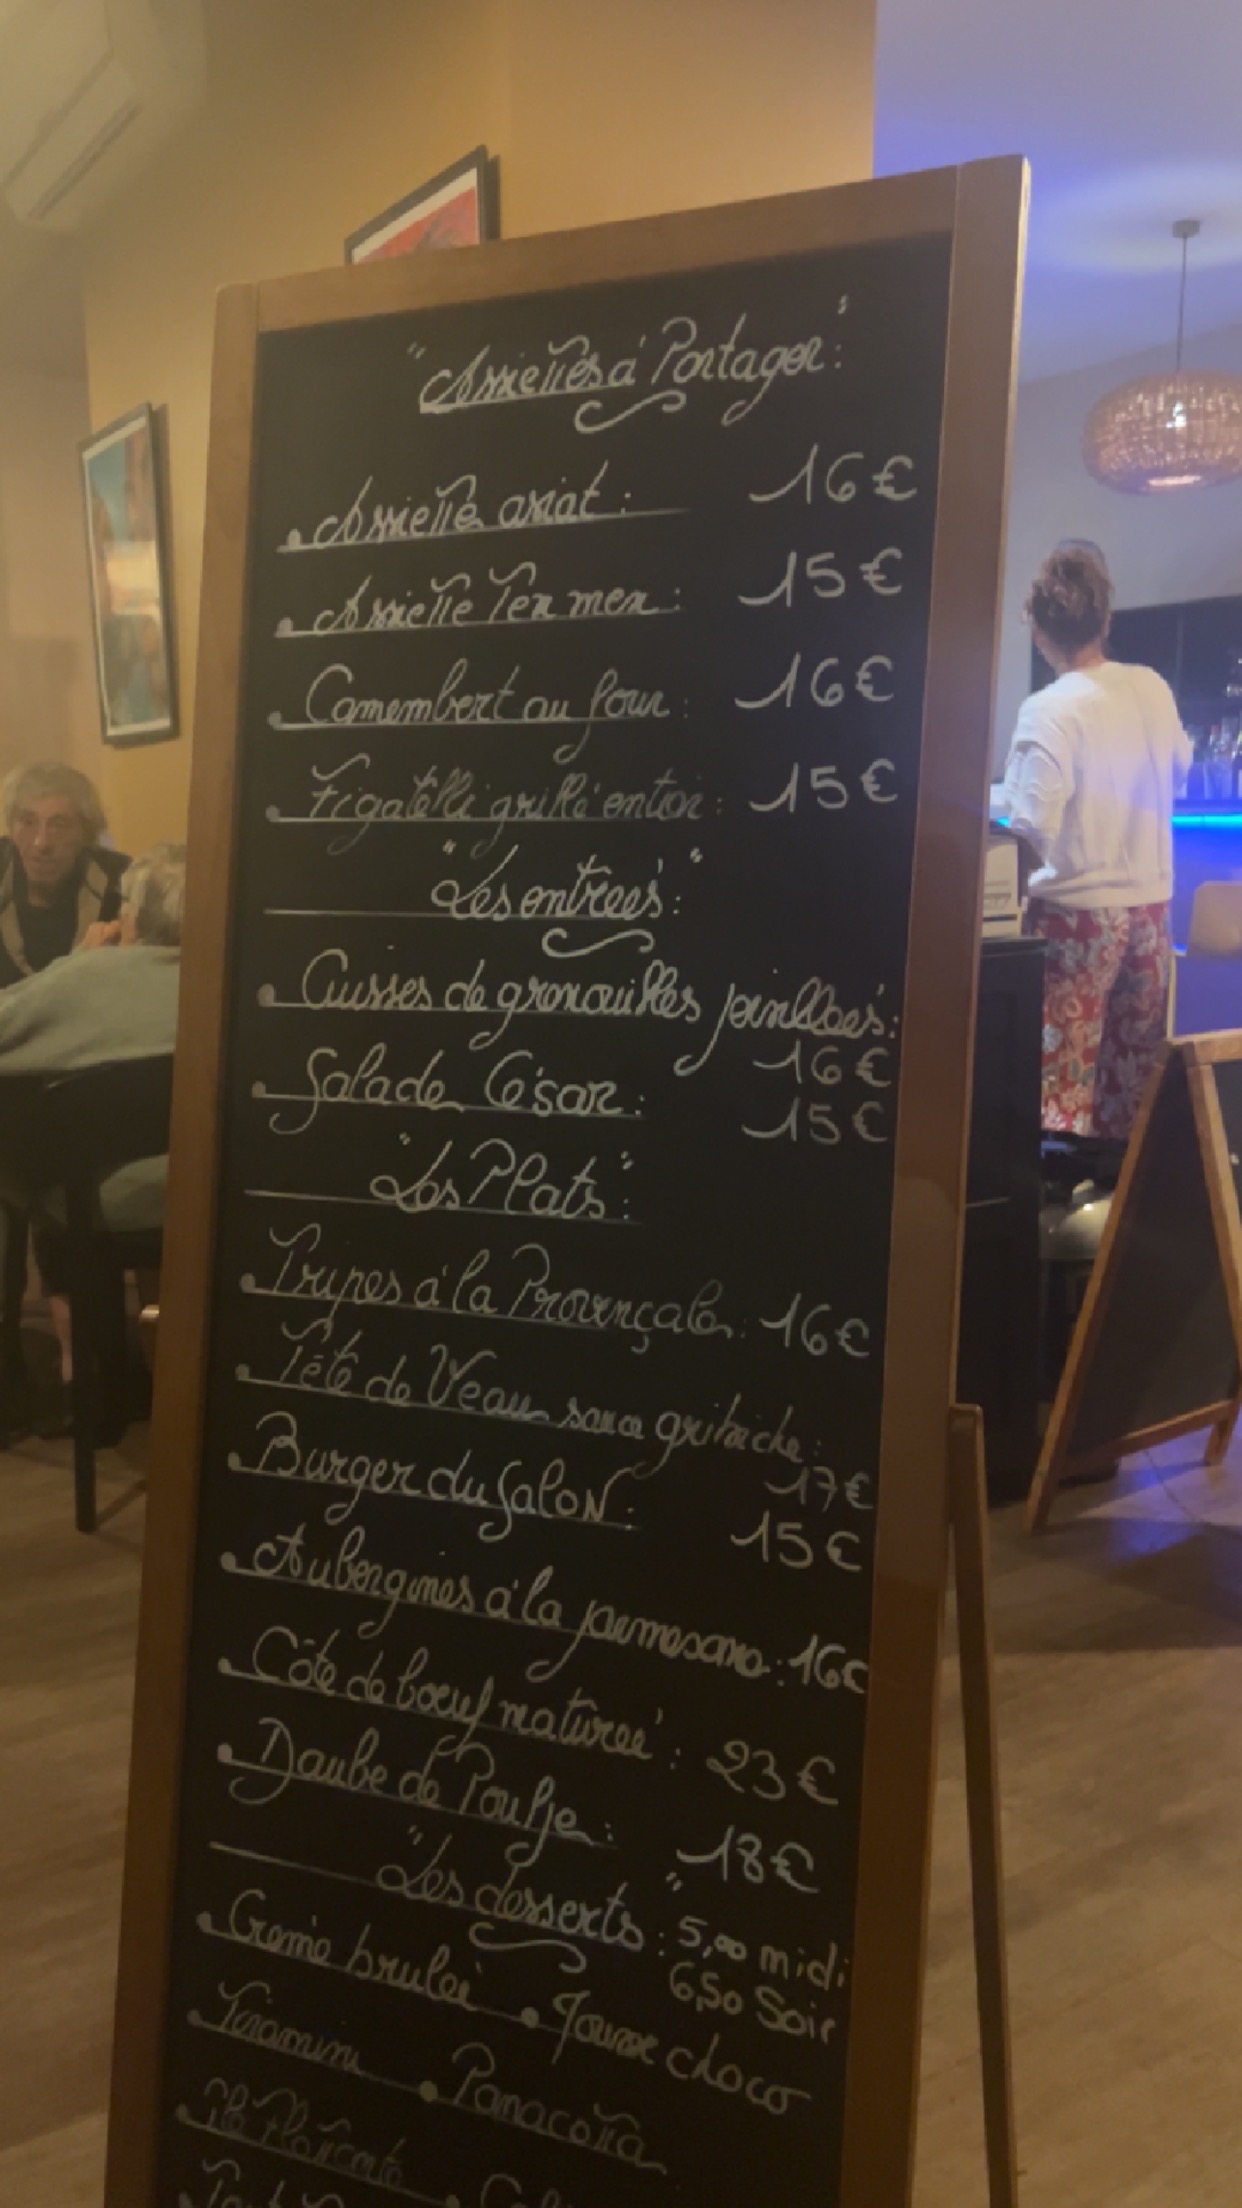 "Assiettes à Partager":
Assiette asiat: 16€
Assiette Tex mex: 15€
Camembert au four: 16€
Figatelli grillé entier: 15€
"Les entrées":
Cuisses de grenouilles persillées:
16€
Salade César: 15€
"Les Plats":
Tripes à la Provençale: 16€
Tête de Veau sauce gribiche:
17€
Burger du SaloN: 15€
Aubergines à la parmesane: 16€
Côte de boeuf maturée: 23€
Daube de Poulpe: 18€
"Les desserts": 5,00 midi
6,50 Soir
Crème brulée
Tiramisu
Panacotta